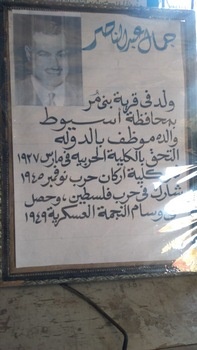 جمال عبد الناصر
ولد فى قرية بنى مر
بمحافظة أسيوط
والده موظف بالدولة
التحق بالكلية الحربية فى مارس ١٩٣٧
كلية أركان حرب نوفمبر ١٩٤٥
شارك فى حرب فلسطين، وحصل
وسام النجمة العسكرية ١٩٤٩